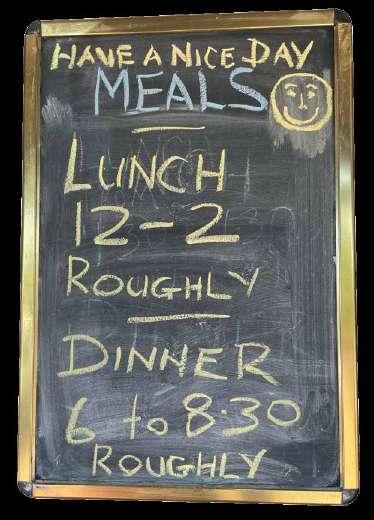 HAVE A NICE DAY
MEALS
LUNCH
12-2
ROUGHLY
DINNER
6 to 8.30
ROUGHLY